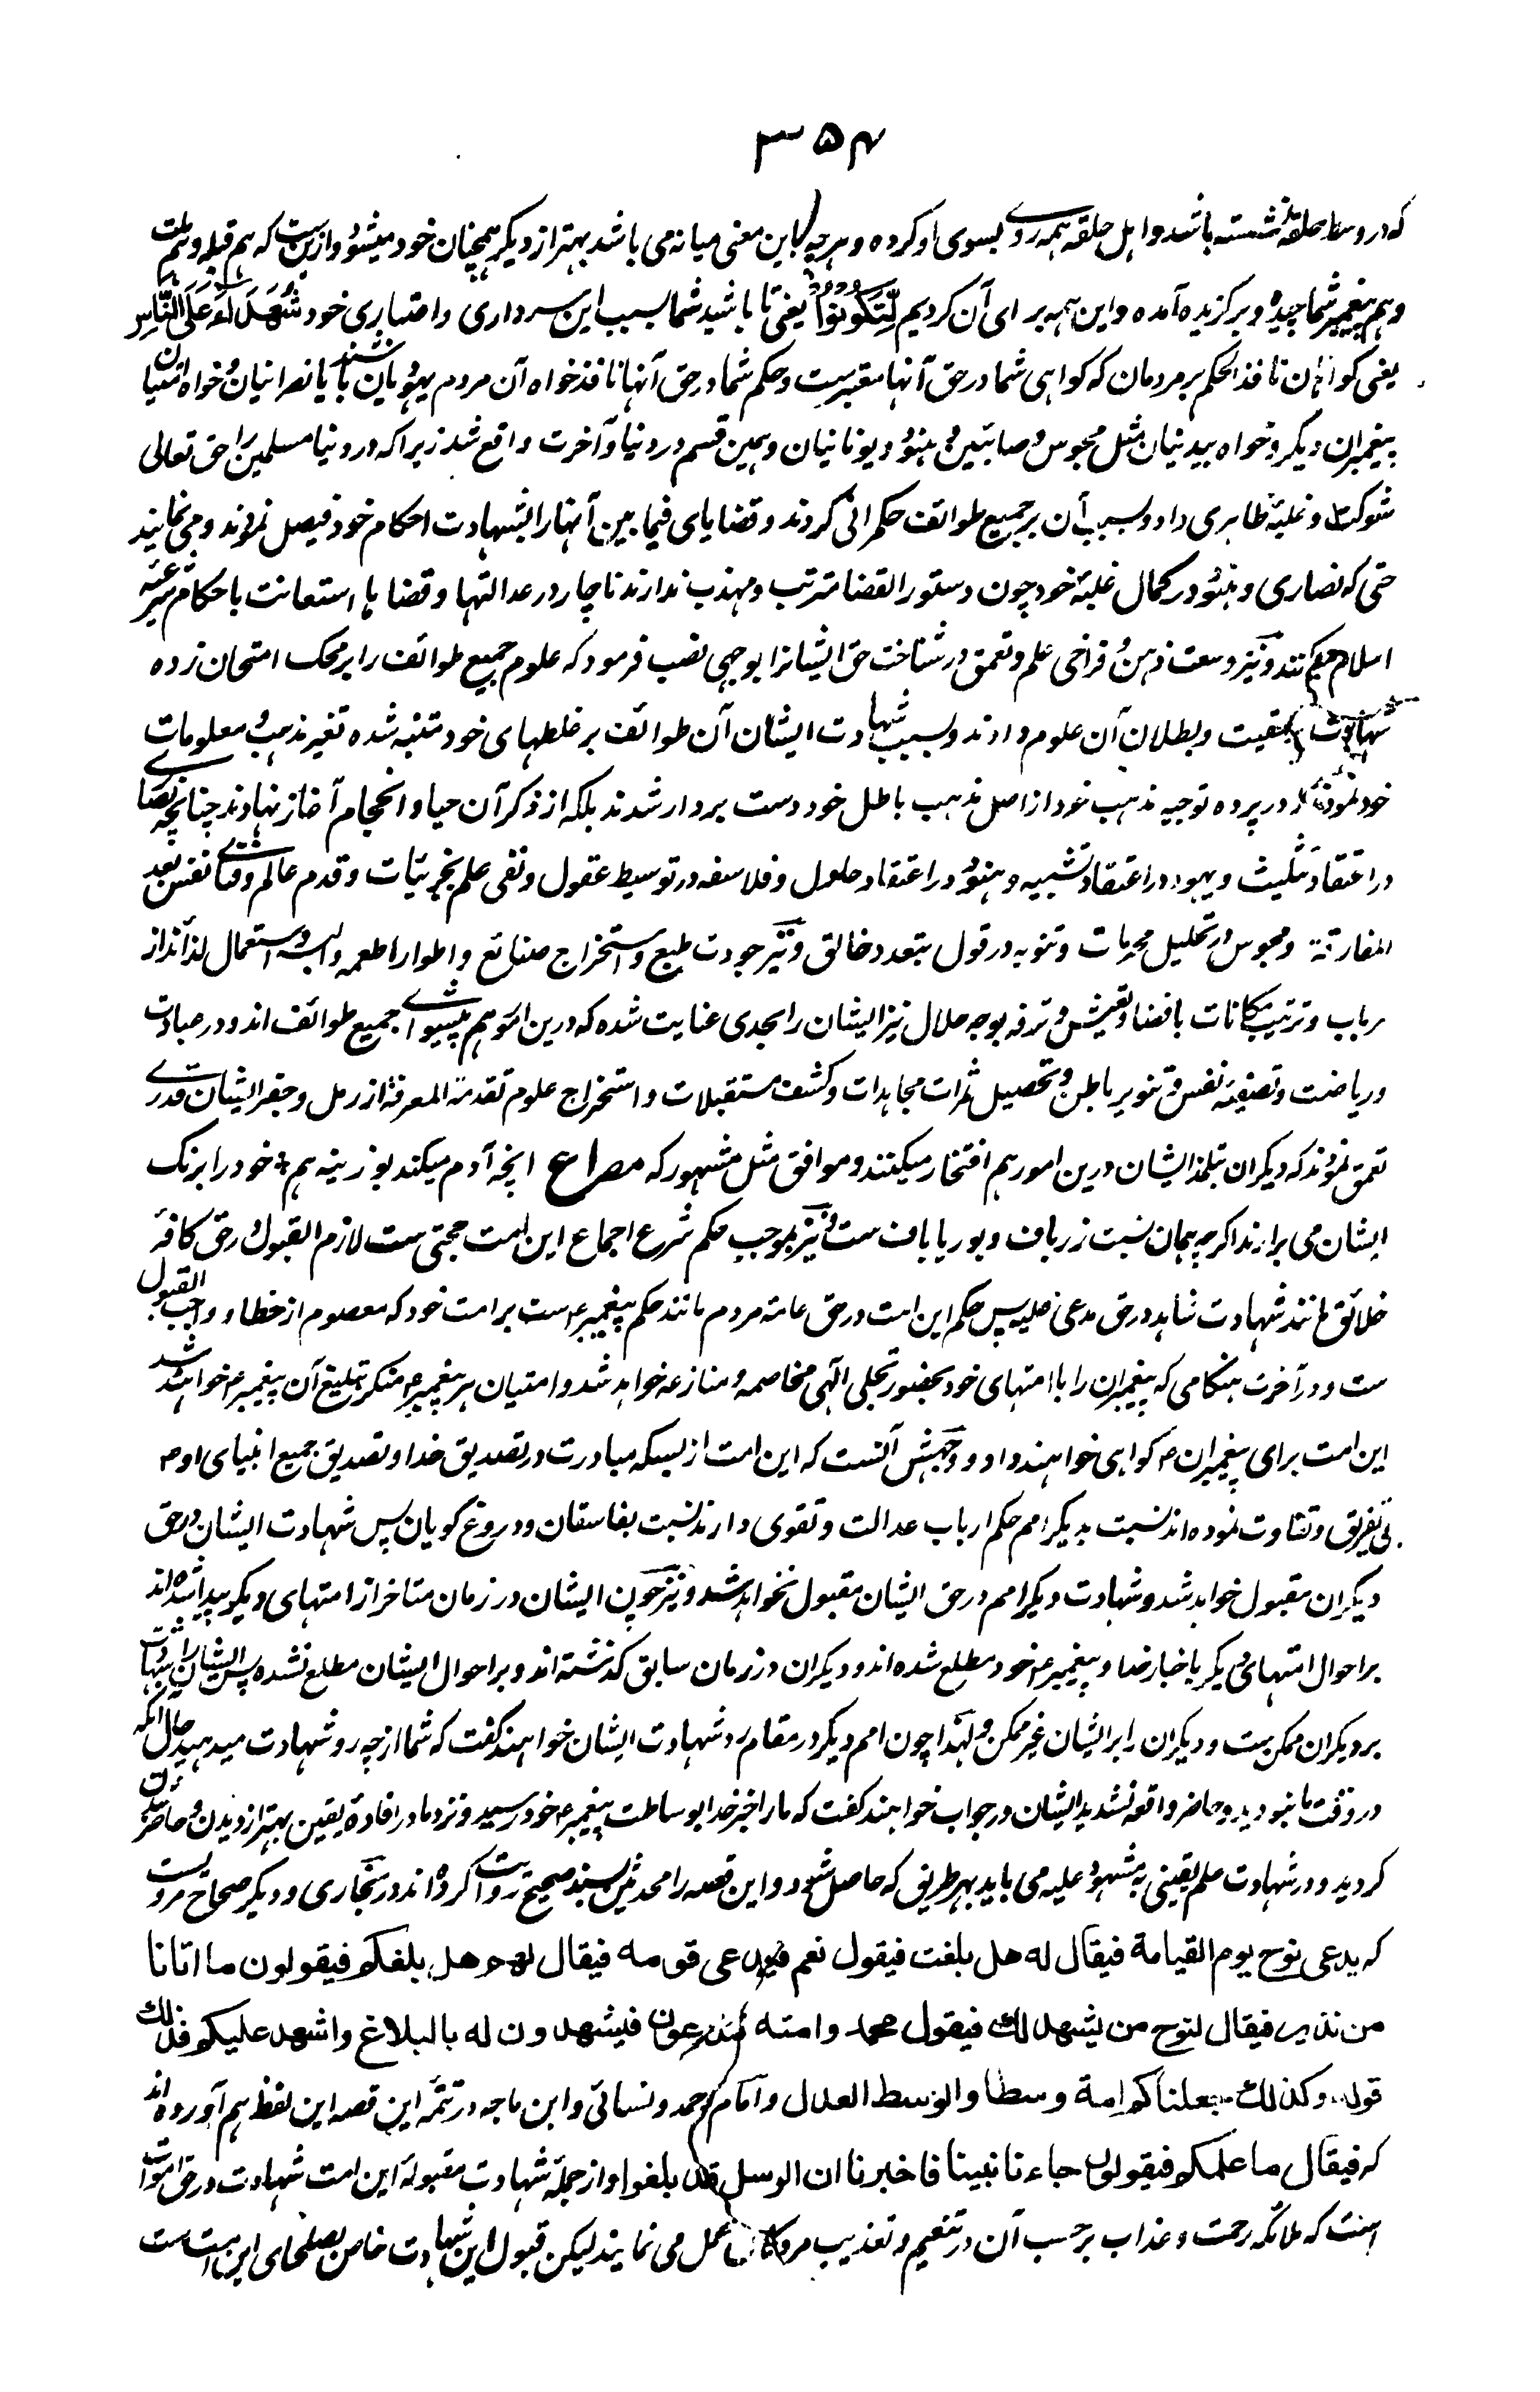 ۳۵۴
که در وسط حلقه نشسته باشد و اهل حلقه همه روے بسوی او کرده و هرچه باین معنی میانه می باشد بهتر از دیگر همچنان خود میشود و ازین ست که هم قبله و هم ملت
و هم پیغمبر شما چیده و برگزیده آمده و این همه برای آن کردیم لِّتَكُونُوا یعنی تا باشید شما بسبب این سرداری و اعتباری خود شُهَدَاءَ عَلَى النَّاسِ
یعنی گواهان نافذ الحکم بر مردمان که گواهی شما در حق آنها معتبرست و حکم شما در حق آنها نافذ خواه آن مردم یهودیان باشند یا نصرانیان و خواه امتیان
پیغمبران دیگر و خواه بیدینان مثل مجوس و صائبین و هنود و یونانیان و همین قسم در دنیا و آخرت واقع شد زیرا که در دنیا مسلمین را حق تعالی
شوکت و غلبۂ ظاهری داد و بسبب آن بر جمیع طوائف حکمرانی کردند و قضایای فیما بین آنها را بشهادت احکام خود فیصل نمودند و می نمایند
حتی که نصاری و هنود در کمال غلبۂ خود چون دستور القضا مترتب و مهذب ندارند ناچار در عدالتها و قضایا استعانت باحکام شرعیه
اسلام میکنند و نیز وسعت ذهن و فراخی علم و تعمق در شناخت حق ایشانرا بوجهی نصب فرمود که علوم جمیع طوائف را بر محک امتحان زده
شهادت بحقیت و بطلان آن علوم دادند و بسبب شهادت ایشان آن طوائف بر غلطهای خود متنبه شده تغیر مذهب و معلومات
خود نمودند در پرده توجیه مذهب خود از اصل مذهب باطل خود دست بردار شدند بلکه از ذکر آن حیا و انحجام آغاز نهادند چنانچه نصاری
در اعتقاد تثلیث و یهود در اعتقاد تشبیه و هنود در اعتقاد حلول و فلاسفه در توسیط عقول و نفی علم بجزئیات و قدم عالم و فنای نفس بعد
المفارقة و مجوس در تحلیل محرمات و ثنویه در قول بتعدد خالق و نیز جودت طبع و استخراج صنائع و اطوار اطعمه و البسه و استعمال لذائذ از
هر باب و ترتیب مکانات بافضا و تعیش و ترفه بوجه حلال نیز ایشان را بحدی عنایت شده که درین امور هم پیشوای جمیع طوائف اند و در عبادت
و ریاضت و تصفیۂ نفس و تنویر باطن و تحصیل ثمرات مجاهدات و کشف مستقبلات و استخراج علوم تقدمة المعرفة از رمل و جفر ایشان قدرے
تعمق نمودند که دیگران بتلمذ ایشان درین امور هم افتخار میکنند و موافق مثل مشهور که مصراع انچه آدم میکند بوزینه هم خود را برنگ
ایشان می برارند اگرچه همان نسبت زرباف و بوریاباف ست و نیز بموجب حکم شرع اجماع این امت حجتی ست لازم القبول در حق کافۂ
خلائق مانند شهادت شاهد در حق مدعی علیه پس حکم این امت در حق عامه مردم مانند حکم پیغمبر ست بر امت خود که معصوم از خطا و واجب القبول
ست و در آخرت هنگامی که پیغمبران را با امتهای خود بحضور تجلی الٰهی مخاصمه و منازعه خواهد شد و امتیان هر پیغمبر منکر تبلیغ آن پیغمبر خواهند شد
این امت برای پیغمبران گواهی خواهند داد و وجهش آنست که این امت از بسکه مبادرت در تصدیق خدا و تصدیق جمیع انبیای او
بی تفریق و تفاوت نموده اند نسبت بدیگر امم حکم ارباب عدالت و تقوی دارند نسبت بفاسقان و دروغ گویان پس شهادت ایشان در حق
دیگران مقبول خواهد شد و شهادت دیگر امم در حق ایشان مقبول نخواهد شد و نیز چون ایشان در زمان متاخر از امتهای دیگر پیدا شده اند
بر احوال امتهای دیگر باخبار خدا و پیغمبر خود مطلع شده اند و دیگران در زمان سابق گذشته اند و بر احوال ایشان مطلع نشده پس ایشان را شهادت
بر دیگران ممکن ست و دیگران را بر ایشان غیر ممکن و لهذا چون امم دیگر در مقام رد شهادت ایشان خواهند گفت که شما از چه رو شهادت میدهید حال آنکه
در وقت ما نبودید و حاضر واقعه نشدید ایشان در جواب خواهند گفت که ما را خبر خدا بوساطت پیغمبر خود رسید و نزد ما در افادۂ یقین بهتر از دیدن و حاضر شدن
گردید و در شهادت علم یقینی به مشهود علیه می باید بهر طریق که حاصل شود و این قصه را محدثین بسند صحیح روایت کرده اند در بخاری و دیگر صحاح مرویست
که یدعی نوح یوم القیامة فیقال له هل بلغت فیقول نعم فیدعی قومه فیقال لهم هل بلغکم فیقولون ما اتانا
من نذیر فیقال لنوح من یشهد لك فیقول محمد وامته فیدعون فیشهدون له بالبلاغ واشهد علیکم فذلك
قوله وکذلك جعلناکم امة وسطا والوسط العدل و امام احمد و نسائی و ابن ماجه در تتمۂ این قصه این لفظ هم آورده اند
که فیقال ما علمکم فیقولون جاءنا نبینا فاخبرنا ان الرسل قد بلغوا و از جملۂ شهادت مقبولۂ این امت شهادت در حق اموات
است که ملائکه رحمت و عذاب برحسب آن در تنعیم و تعذیب مردگان عمل می نمایند لیکن قبول این شهادت خاص بصلحای این امت ست